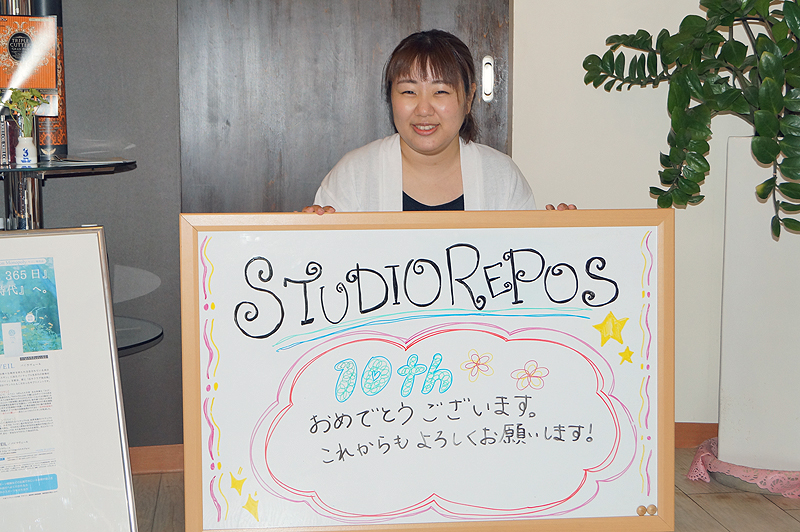 STUDIO REPOS
10th
おめでとうございます。
これからもよろしくお願いします!
365日』
時代』へ。
TRIPLE
CUTTER